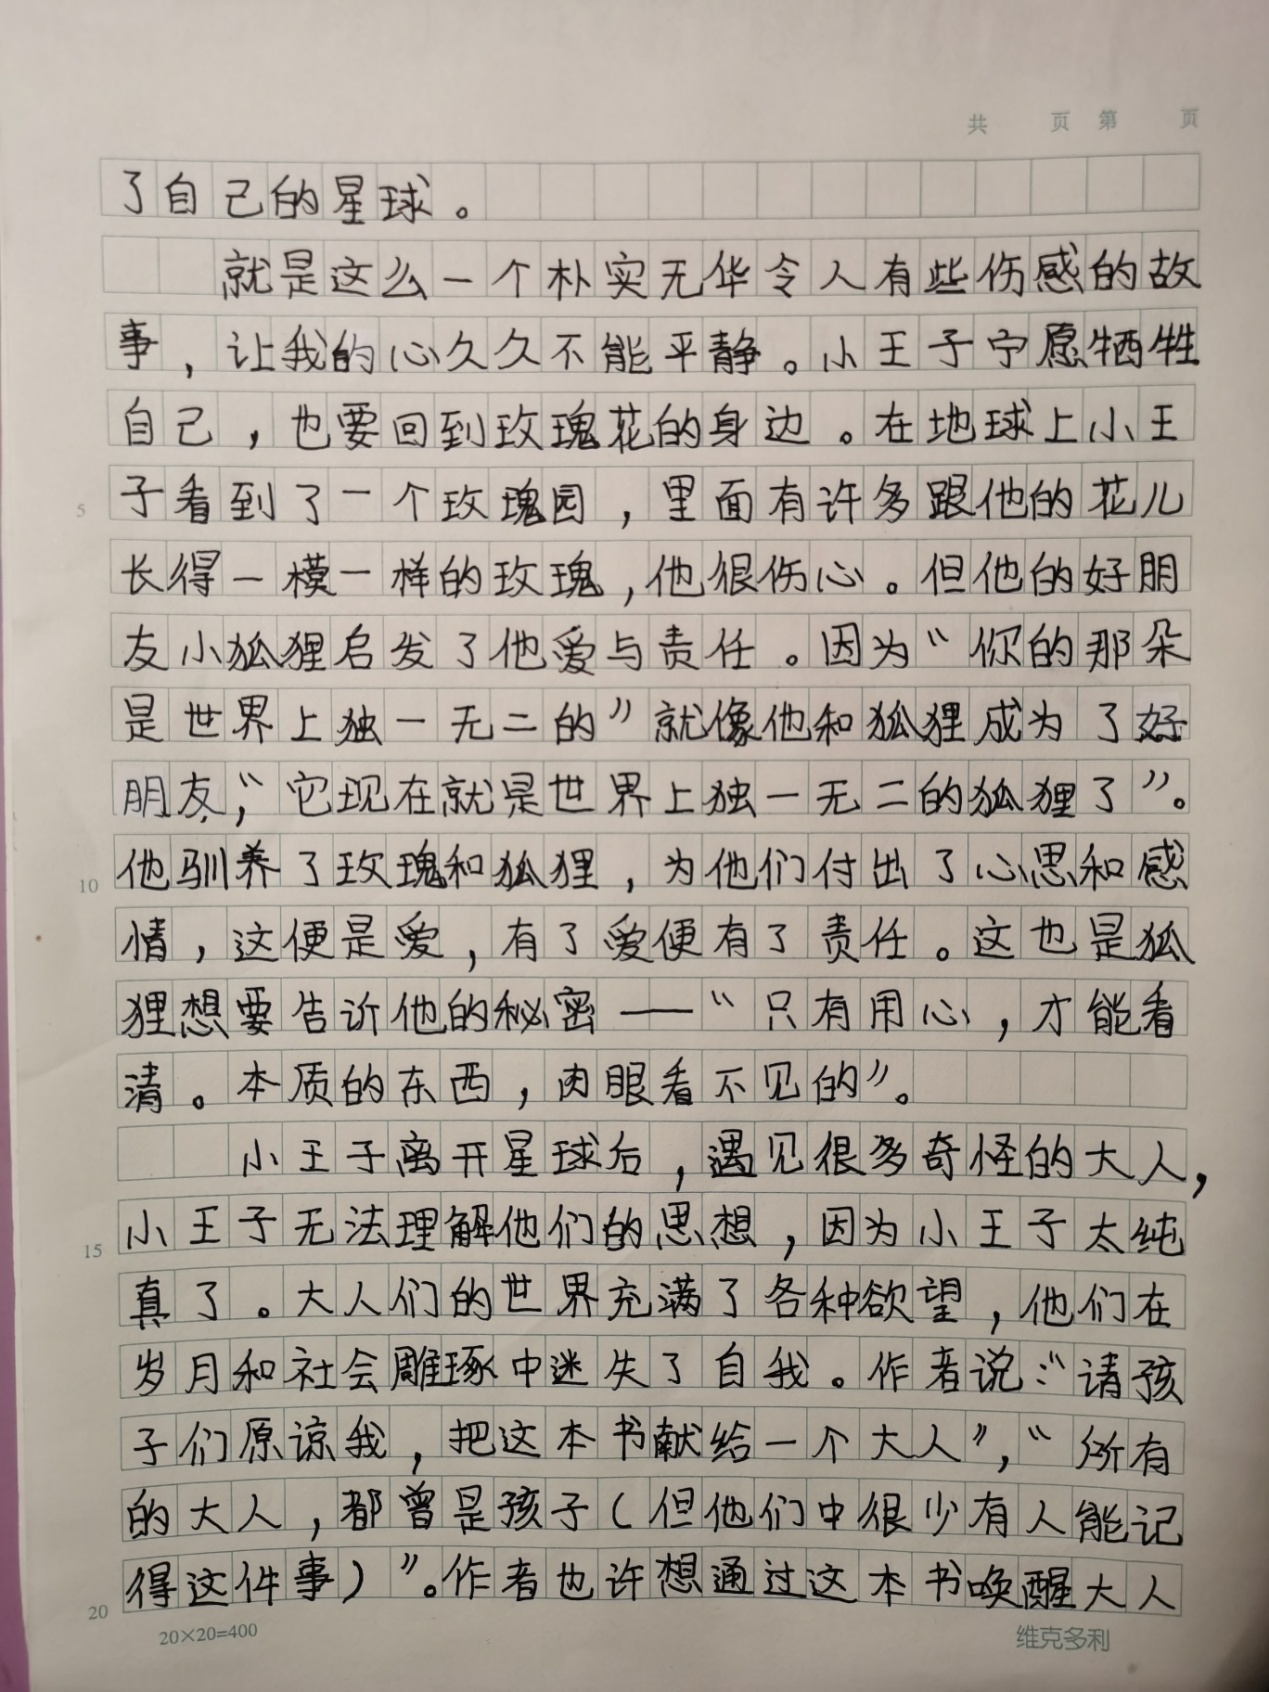 共 页 第 页
了自己的星球。
就是这么一个朴实无华令人有些伤感的故
事，让我的心久久不能平静。小王子宁愿牺牲
自己，也要回到玫瑰花的身边。在地球上小王
子看到了一个玫瑰园，里面有许多跟他的花儿
5
长得一模一样的玫瑰，他很伤心。但他的好朋
友小狐狸启发了他爱与责任。因为“你的那朵
是世界上独一无二的”就像他和狐狸成为了好
朋友，“它现在就是世界上独一无二的狐狸了”。
他驯养了玫瑰和狐狸，为他们付出了心思和感
10
情，这便是爱，有了爱便有了责任。这也是狐
狸想要告诉他的秘密——“只有用心，才能看
清。本质的东西，肉眼看不见的”。
小王子离开星球后，遇见很多奇怪的大人，
小王子无法理解他们的思想，因为小王子太纯
15
真了。大人们的世界充满了各种欲望，他们在
岁月和社会雕琢中迷失了自我。作者说：“请孩
子们原谅我，把这本书献给一个大人”，“所有
的大人，都曾是孩子(但他们中很少有人能记
得这件事)”。作者也许想通过这本书唤醒大人
20
20×20=400
维克多利